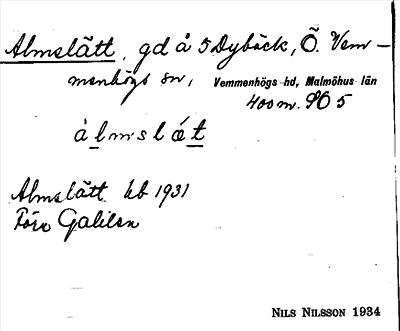 Almslätt, gd å 5 Dybäck, Ö. Vem-
menhögs sn, Vemmenhögs hd, Malmöhus län
400 m. SO 5
àlmslǽt
Almslätt kb 1931
Förr Galilen
NILS NILSSON 1934